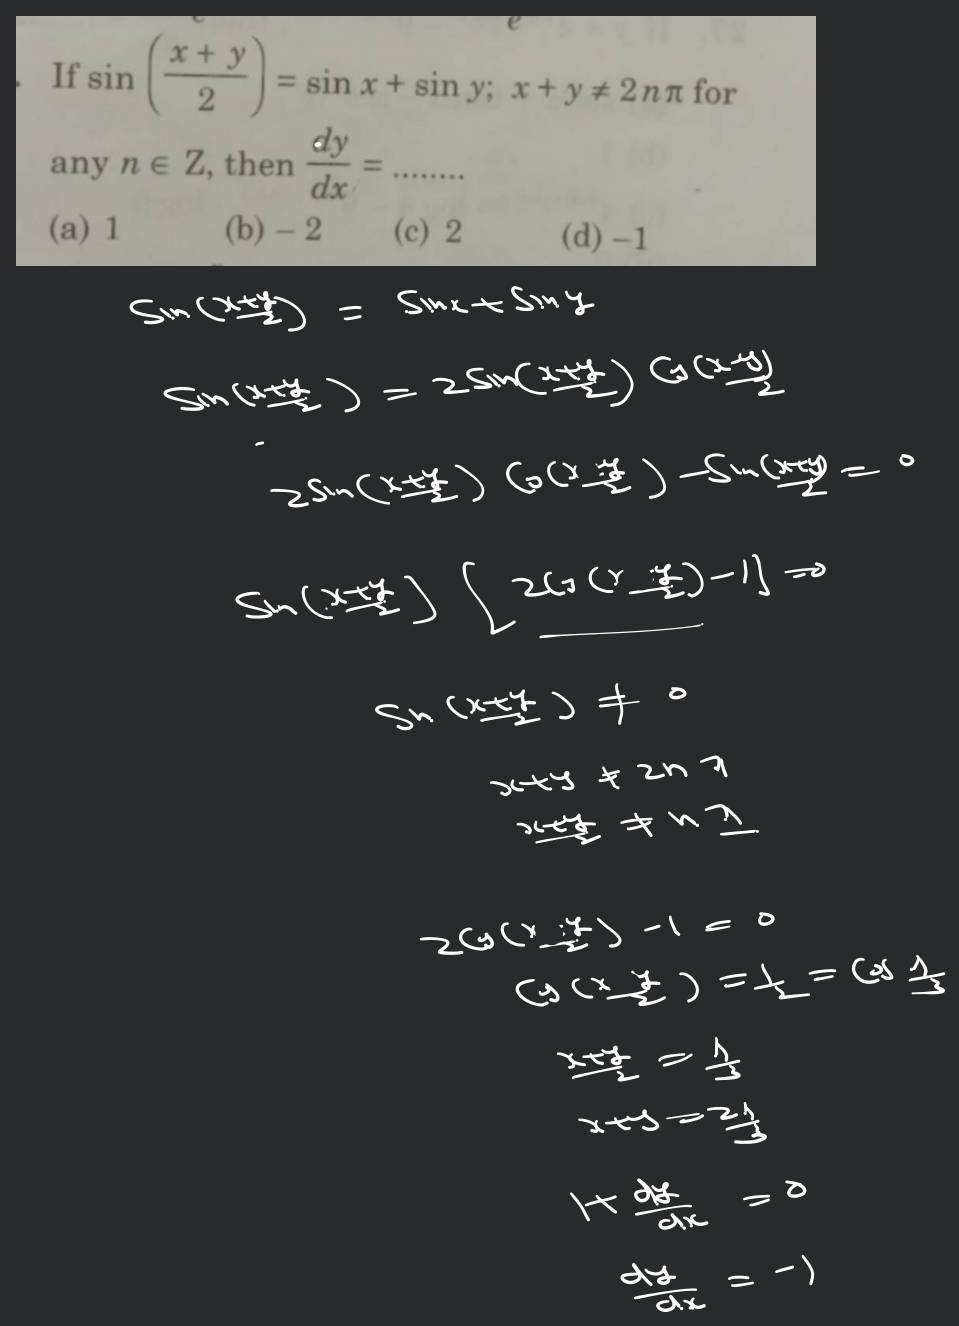 If sin ((x + y)/2) = sin x + sin y; x + y ≠ 2nπ for
any n ∈ Z, then dy/dx = ........
(a) 1 (b) – 2 (c) 2 (d) –1
Sin((x+y)/2) = Sinx + Siny
Sin((x+y)/2) = 2Sin((x+y)/2) Cos((x-y)/2)
2Sin((x+y)/2) Cos((x-y)/2) - Sin((x+y)/2) = 0
Sin((x+y)/2) [2Cos((x-y)/2) - 1] = 0
Sin((x+y)/2) ≠ 0
x+y ≠ 2nπ
(x+y)/2 ≠ nπ
2Cos((x-y)/2) - 1 = 0
Cos((x-y)/2) = 1/2 = Cos π/3
(x+y)/2 = π/3
x+y = 2π/3
1 + dy/dx = 0
dy/dx = -1